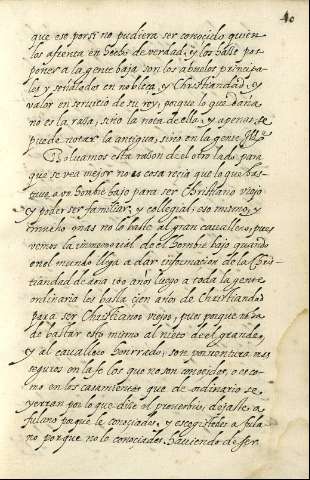 40
que eso por si no pudiera ser conocido quien
los afrenta en hecho de verdad, y los haze pos
poner a la gente baja son los abuelos principa
les y señalados en nobleza, y Christiandad, y
valor en servicio de su rey, porque lo que daña
no es la rasa, sino la nota de ella, y apenas se
puede notar la antigua, sino en la gente Ille
Bolvamos esta rason de el otro lado, para
que se vea mejor no es cosa recia que lo que bas
tare a un hombre bajo para ser Christiano viejo
y poder ser familiar, y collegial, eso mismo, y
mucho mas no le baste al gran cavallero, pues
vemos la immemorial de el hombre bajo quando
en el mundo llega a dar informacion de la Chris
tiandad de a 100 años luego a toda la gente
ordinaria les basta cien años de Christiandad
para ser Christianos viejos, pues porque no ha
de bastar esto mismo al nieto de el grande,
y al cavallero honrrado, son por ventura mas
seguros en la fe los que no son conocidos, o es co
mo en los casamientos que de ordinario se
yerran por lo que dize el proverbio, dejaste a
fulano porque le conociades, y escogisteis a fula
no porque no le conociades haviendo de ser